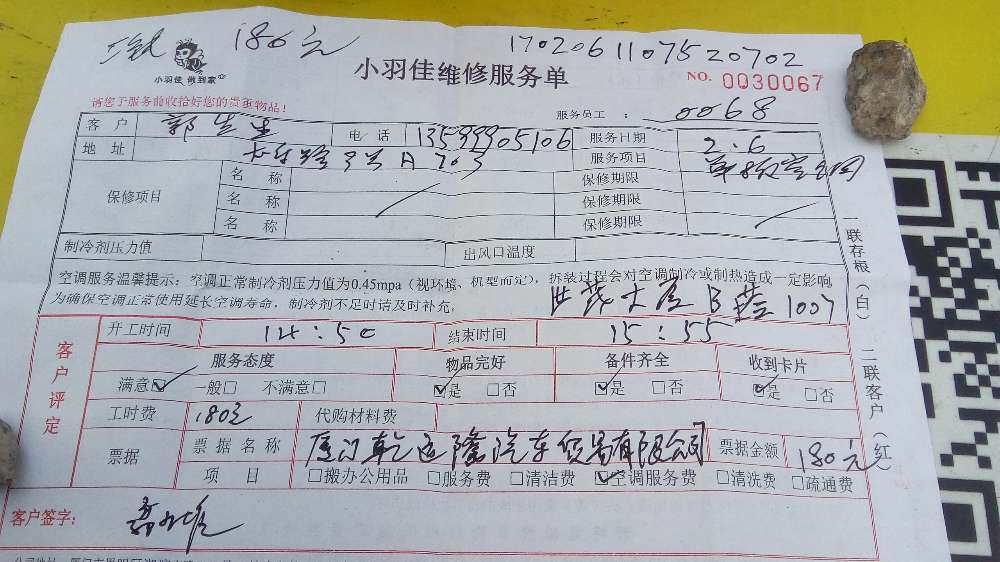 180元
170206110752070​2
小羽佳 做到家
小羽佳维修服务单
NO. 0030067
请您于服务前收拾好您的贵重物品！
服务员工 : 0068
客 户 郭先生 电 话 13599905106 服务日期 2.6
地 址 A 703 服务项目
保修项目 名 称 保修期限
名 称 保修期限
名 称 保修期限
制冷剂压力值 出风口温度
空调服务温馨提示：空调正常制冷剂压力值为0.45mpa（视环境、机型而定），拆装过程会对空调制冷或制热造成一定影响
为确保空调正常使用延长空调寿命，制冷剂不足时请及时补充。
世茂大厦B塔1007
开工时间 14:50 结束时间 15:55
客户评定
服务态度 物品完好 备件齐全 收到卡片
满意☑ 一般□ 不满意□ ☑是 □否 ☑是 □否 ☑是 □否
工时费 180元 代购材料费
票据 票据名称 厦门乾运隆汽车贸易有限公司 票据金额 180元
项 目 □搬办公用品 □服务费 □清洁费 ☑空调服务费 □清洗费 □疏通费
客户签字：
一联存根（白） 二联客户（红）